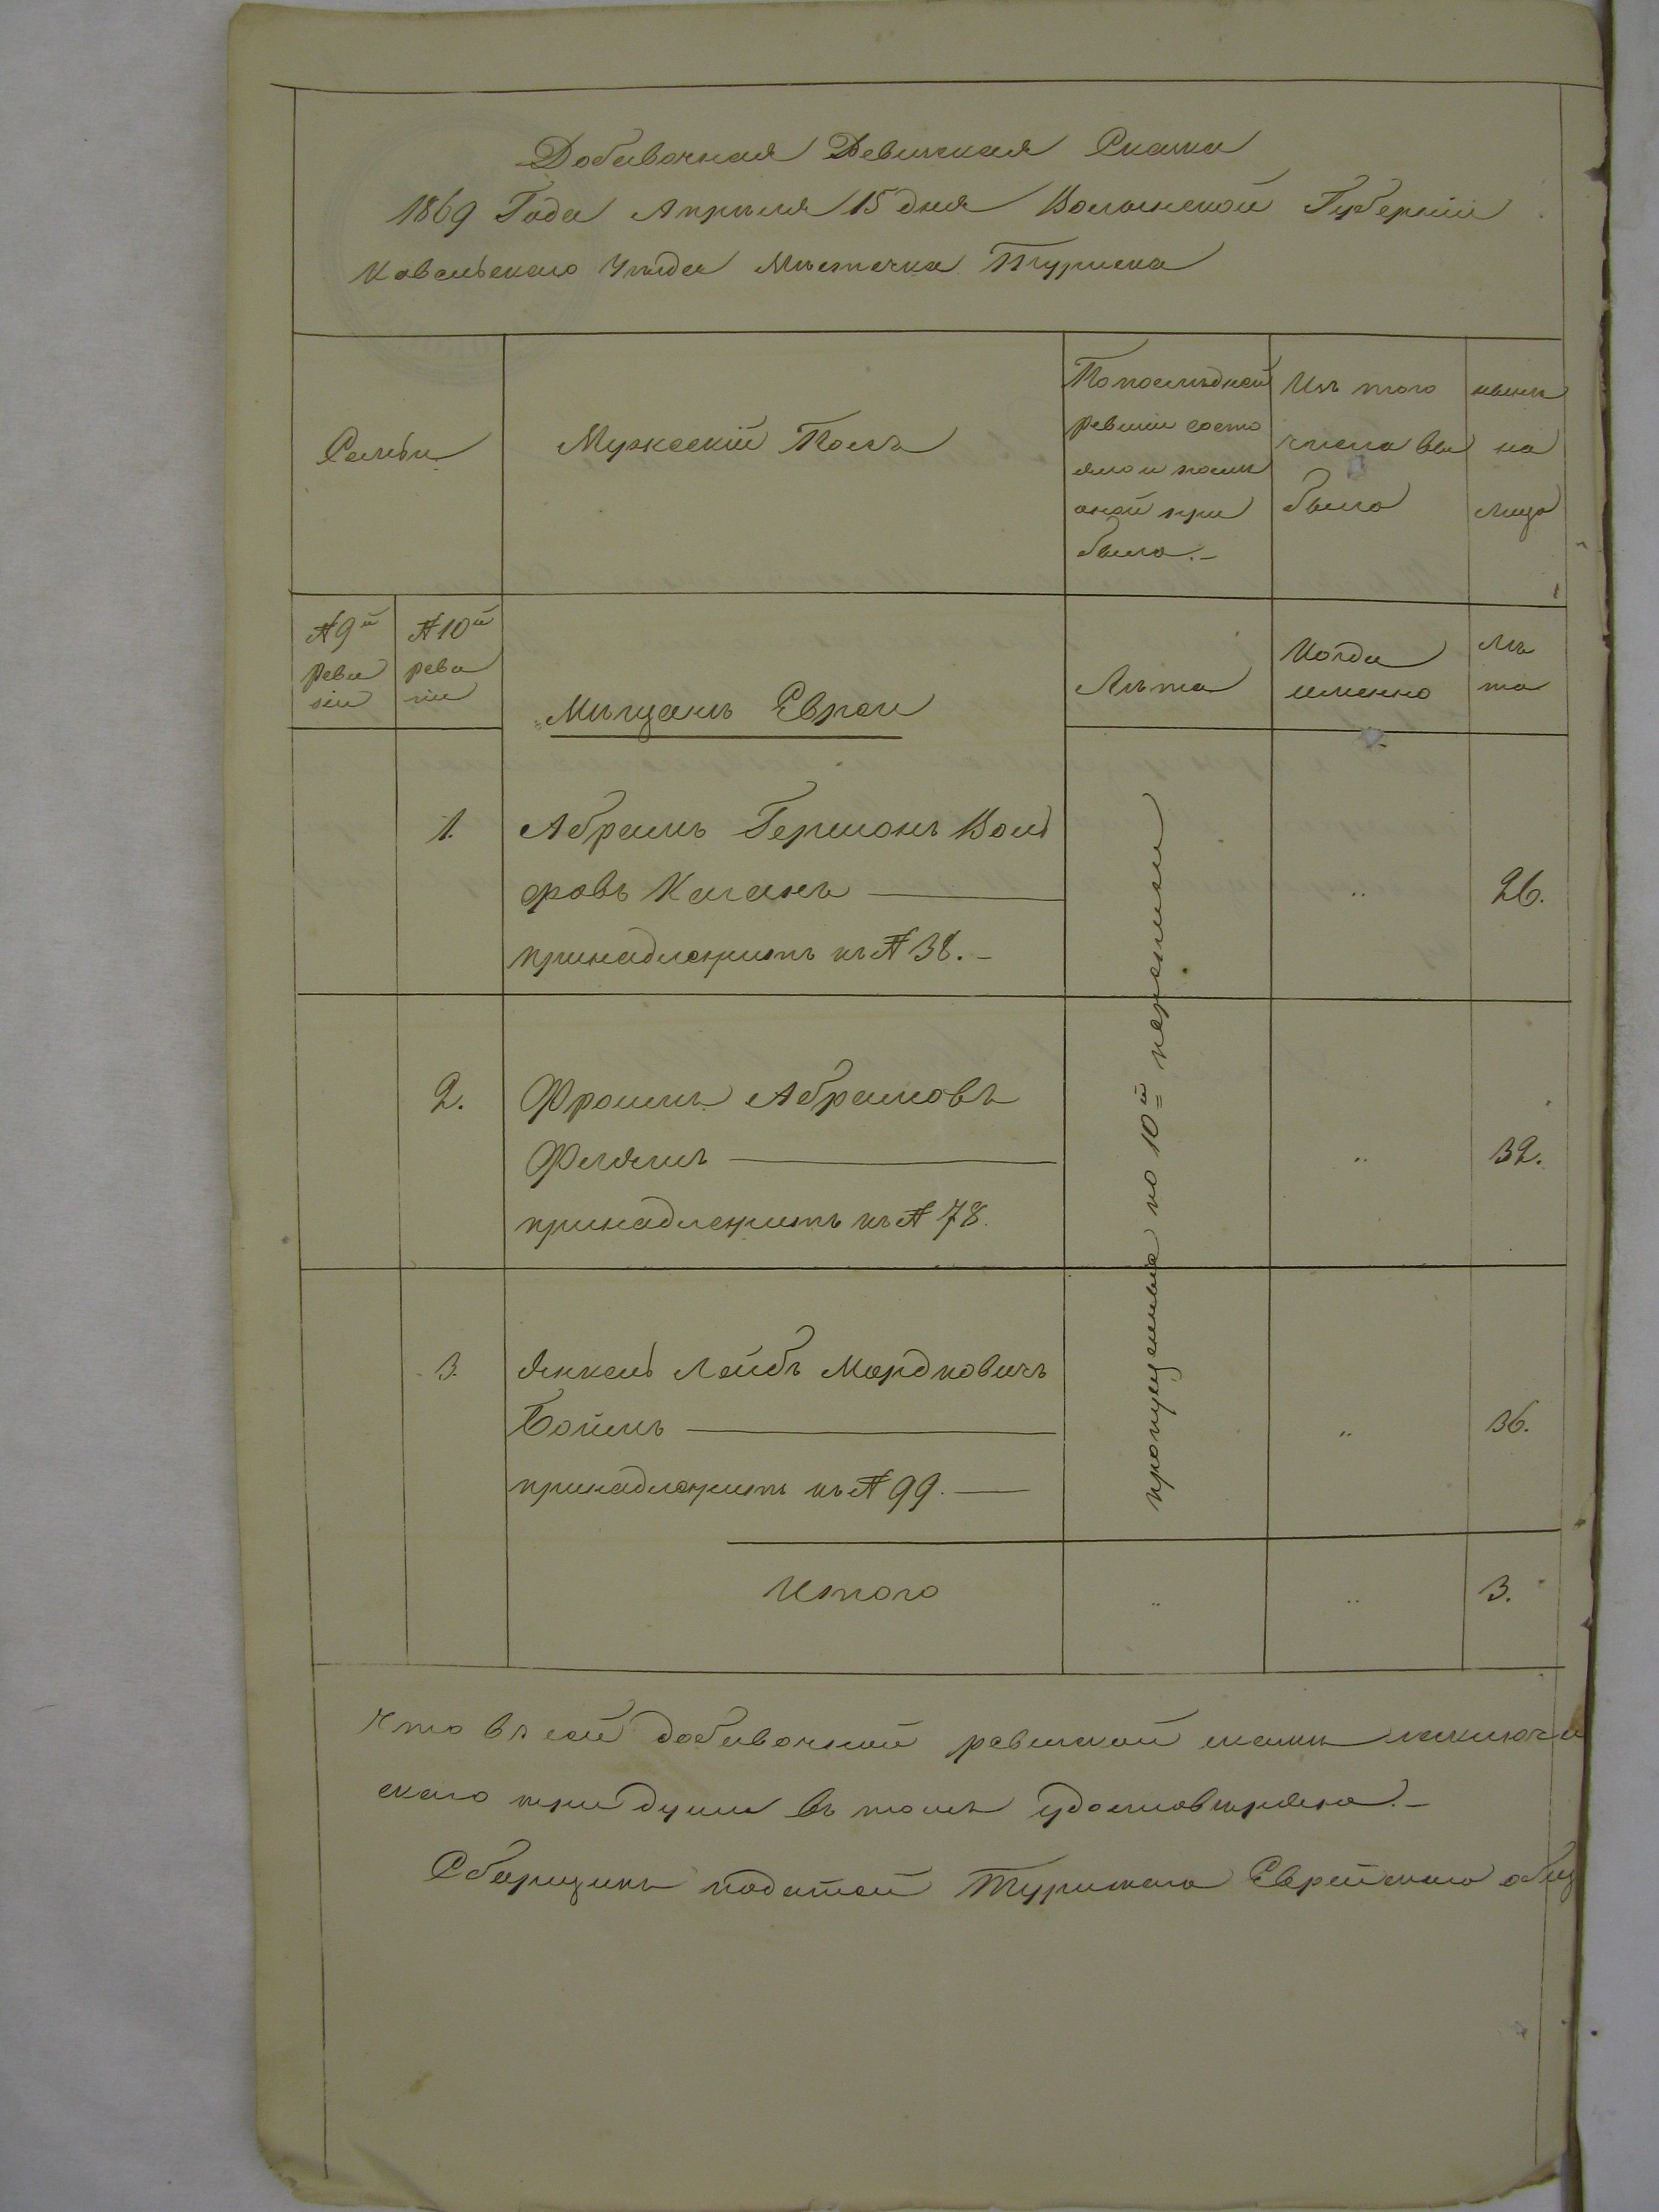 Добавочная Ревизская Сказка
1869 Года Апреля 15 дня Волынской Губерніи
Ковельскаго Уезда Местечка Турійска
Семьи
Мужескій Полъ
По последней
ревизіи состо
яло и после
оной при
было.-
Изъ того
числа вы
было
ныне
на
лицо
№ 9й
реви
зіи
№ 10й
реви
зіи
Мещанъ Евреи
Лета
Когда
именно
Ле
та
1.
Абрамъ Гершонъ Воль
фовъ Каганъ
принадлежитъ къ № 38.-
"
26.
2.
Фроимъ Абрамовъ
принадлежитъ къ № 78.
"
32.
3.
Янкель Лейбъ Мордковичъ
Боймъ
принадлежитъ къ № 99.
"
36.
пропущенные по 10й переписи
Итого
"
"
3.
Что въ сей добавочной ревизской сказке заключа
три души въ томъ удостоверяю.-
Сборщикъ податей Турійскаго Еврейскаго общ